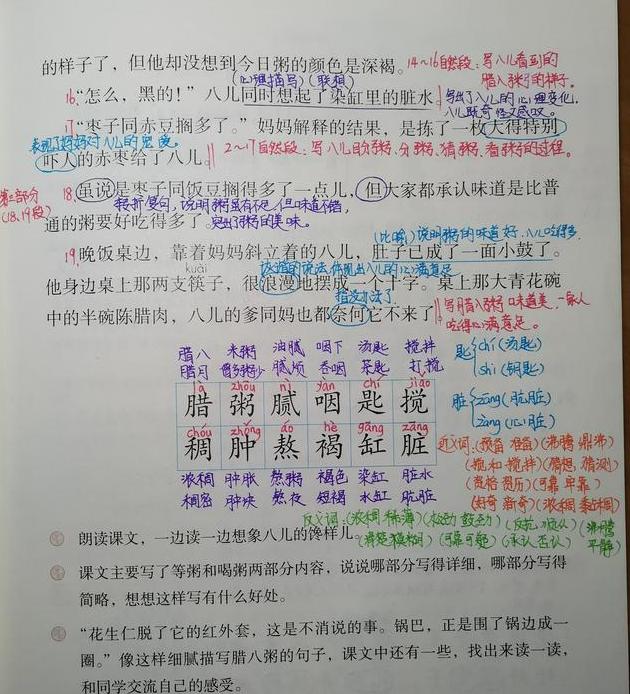 的样子了，但他却没想到今日粥的颜色是深褐。14~16自然段：写八儿看到的
腊八粥的样子。
(心理描写) (联想)
16.“怎么，黑的！”八儿同时想起了染缸里的脏水。
写出了八儿的心理变化，
八儿既奇怪又感叹。
17“枣子同赤豆搁多了。”妈妈解释的结果，是拣了一枚大得特别
表现了妈妈对八儿的宠爱。
吓人的赤枣给了八儿。
2~17自然段：写八儿盼粥、分粥、猜粥、看粥的过程。
第二部分
(18、19段)
18.虽说是枣子同饭豆搁得多了一点儿，但大家都承认味道是比普
转折复句，说明粥虽有不足，但味道不错，
通的粥要好吃得多了。突出了粥的美味。
(比喻)说明粥的味道好，八儿吃得多。
19.晚饭桌边，靠着妈妈斜立着的八儿，肚子已成了一面小鼓了。
kuài
他身边桌上那两支筷子，很浪漫地摆成一个十字。桌上那大青花碗
中的半碗陈腊肉，八儿的爹同妈也都奈何它不来了。
写腊八粥味道美，一家人
吃得心满意足。
腊八 米粥 油腻 咽下 汤匙 搅拌
腊月 腻烦 吞咽 茶匙 打搅
匙 chí(汤匙)
shi(钥匙)
là zhōu nì yàn chí jiǎo
腊 粥 腻 咽 匙 搅
脏 zāng(肮脏)
zàng(心脏)
chóu zhǒng áo hè gāng zāng
稠 肿 熬 褐 缸 脏
近义词：(预备 准备)(沸腾 鼎沸)
(搅和 搅拌)(猜想 猜测)
浓稠 肿胀 熬粥 褐色 染缸 脏水
(资格 资历)(可靠 牢靠)
稠密 肿块 熬夜 短褐 水缸 肮脏
(稀奇 新奇)(浓稠 黏稠)
反义词：(浓稠 稀薄)(松劲 鼓劲)(反抗 顺从)(沸腾 平静)
朗读课文，一边读一边想象八儿的馋样儿。
(清楚 模糊)(可靠 可疑)(承认 否认)
课文主要写了等粥和喝粥两部分内容，说说哪部分写得详细，哪部分写得
简略，想想这样写有什么好处。
“花生仁脱了它的红外套，这是不消说的事。锅巴，正是围了锅边成一
圈。”像这样细腻描写腊八粥的句子，课文中还有一些，找出来读一读，
和同学交流自己的感受。